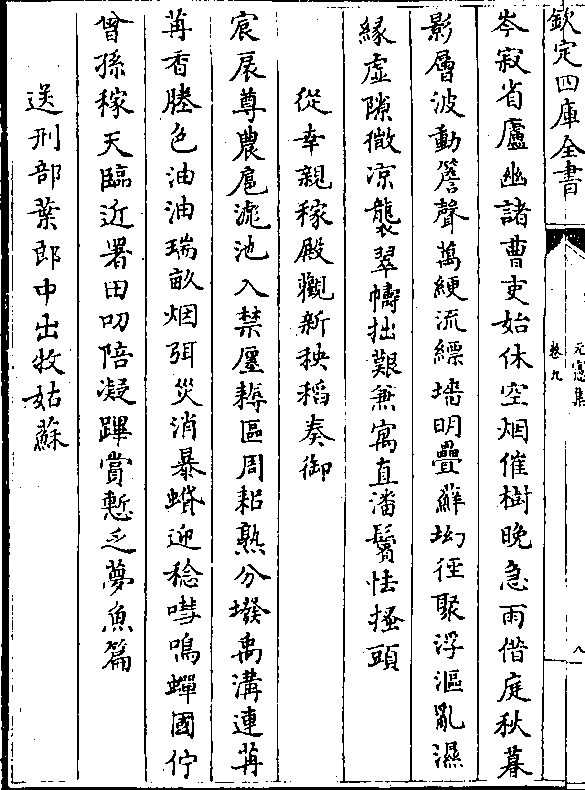 欽定四庫全書
元憲集
卷九
八
岑寂省廬幽諸曹吏始休空烟催樹晚急雨偕庭秋暮
影層波動簷聲萬綆流縹墻明疊蘚坳徑聚浮漚亂濕
緣虛隙微凉襲翠幬拙艱兼寓直潘鬢怯搔頭
從幸親稼殿觀新秧稻奏御
宸扆尊農扈滮池入禁廛耨區周耜熟分墢禹溝連苒
苒香塍色油油瑞畝烟弭災消暴螣迎稔嘒鳴蟬國佇
曾孫稼天臨近署田叨陪凝蹕賞慙乏夢魚篇
送刑部葉郎中出牧姑蘇